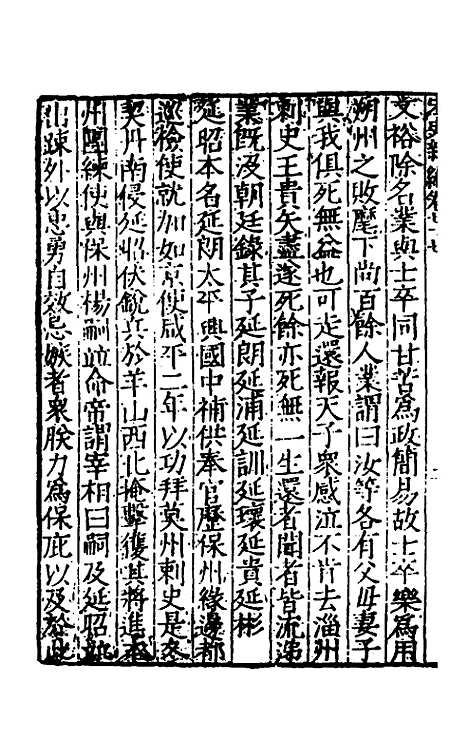 文裕除名業與士卒同甘苦為政簡易故士卒樂為用
朔州之敗麾下尚百餘人業謂曰汝等各有父母妻子
與我俱死無益也可走還報天子眾感泣不肯去淄州
刺史王貴矢盡遂死餘亦死無一生還者聞者皆流涕
業既没朝廷錄其子延朗延浦延訓延瓌延貴延彬
延昭本名延朗太平興國中補供奉官歷保州緣邊都
巡檢使就加如京使咸平二年以功拜莫州刺史是冬
契丹南侵延昭伏銳兵於羊山西北掩擊獲其將進本
州團練使與保州楊嗣並命帝謂宰相曰嗣及延昭並
出疎外以忠勇自效忌嫉者衆朕力為保庇以及於此